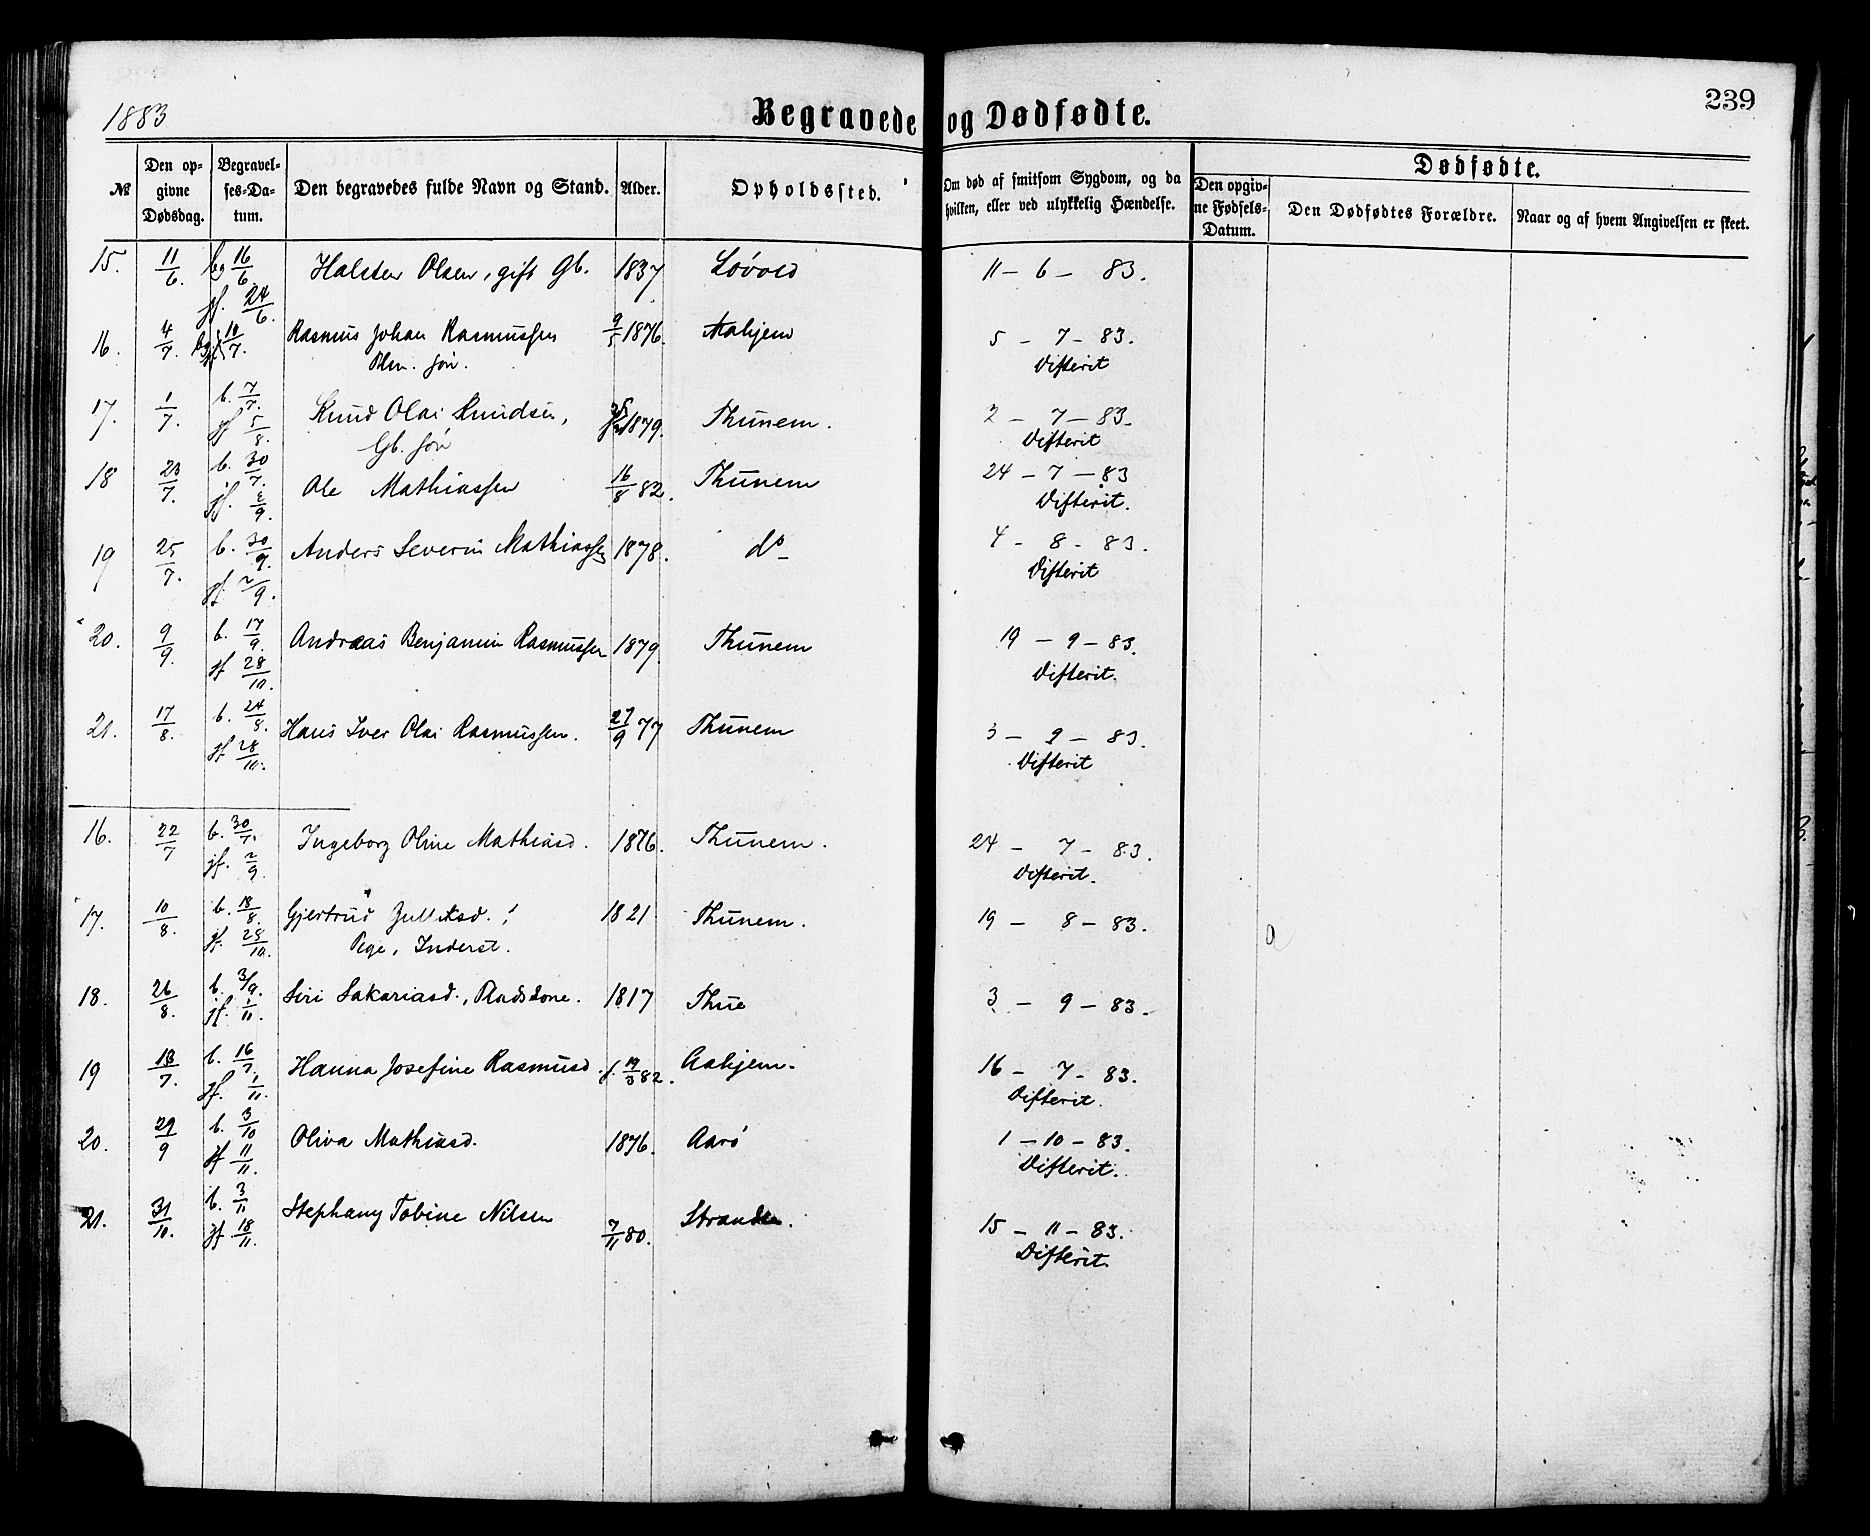 1883
Begravede og Dødfødte.
239
№
Den opgivne Dødsdag.
Begravelses-Datum.
Den begravedes fulde Navn og Stand.
Alder.
Opholdssted.
Om død af smitsom Sygdom, og da hvilken, eller ved ulykkelig Hændelse.
Dødfødte.
Den opgivne Fødsels-Datum.
Den Dødfødtes Forældre.
Naar og af hvem Angivelsen er skeet.
15. 11/6. bg 16/6. Halsten Olsen, gift Gb. 1837 Løvold 11 - 6 - 83.
jf. 24/6.
16. 4/7. 10/7. Rasmus Johan Rasmussen 9/5 1876. Aahjem 5 - 7 - 83.
Plm. søn. Difterit
17. 1/7. b. 7/7. Knud Olai Knudsen, 1879. Thunem. 2 - 7 - 83.
jf 5/8. Gb. søn Difterit
18 23/7. b. 30/7. Ole Mathiassen 16/8 82. Thunem 24 - 7 - 83
jf. 2/9. Difterit.
19 25/7. b. 30/7. Anders Severin Mathiassen 1878. do 4 - 8 - 83.
jf. 2/9. Difterit
20. 9/9. b. 17/9. Andreas Benjamin Rasmussen 1879 Thunem 19 - 9 - 83.
jf 28/10. Difterit.
21. 17/8. b. 24/8. Hans Iver Olai Rasmussen. 27/9 77 Thunem 3 - 9 - 83.
jf 28/10. Difterit
16. 22/7 b. 30/7. Ingeborg Oline Mathiasd. 1876. Thunem. 24 - 7 - 83.
jf. 2/9. Difterit.
17. 10/8. b. 18/8. Gjertrud 1821 Thunem. 19 - 8 - 83.
jf. 28/10. Pige, Inderst.
18. 26/8. b. 3/9. Siri Sakariasd., 1817 Thue 3 - 9 - 83.
jf. 1/11.
19 13/7. b. 16/7. Hanna Josefine Rasmusd. f. 19/3 82. Aahjem. 16 - 7 - 83.
jf. 1/11. Difterit.
20. 29/9 b. 3/10 Oliva Mathiasd. 1876. Aarø 1 - 10 - 83.
jf 11/11. Difterit.
21. 31/10. b. 3/11 Stephany Tobine Nilsen 7/11 80. Stranden. 15 - 11 - 83.
jf 18/11. Difterit.